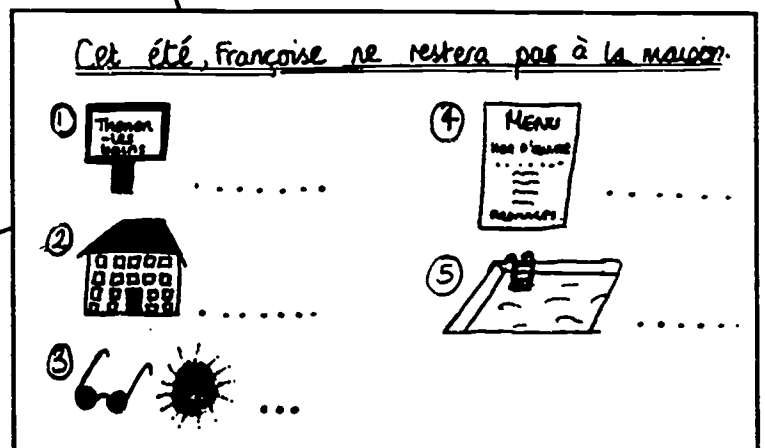 Cet été, Françoise ne restera pas à la maison.
①
Thonon
-les
bains
②
③
④
MENU
d'œuvre
⑤